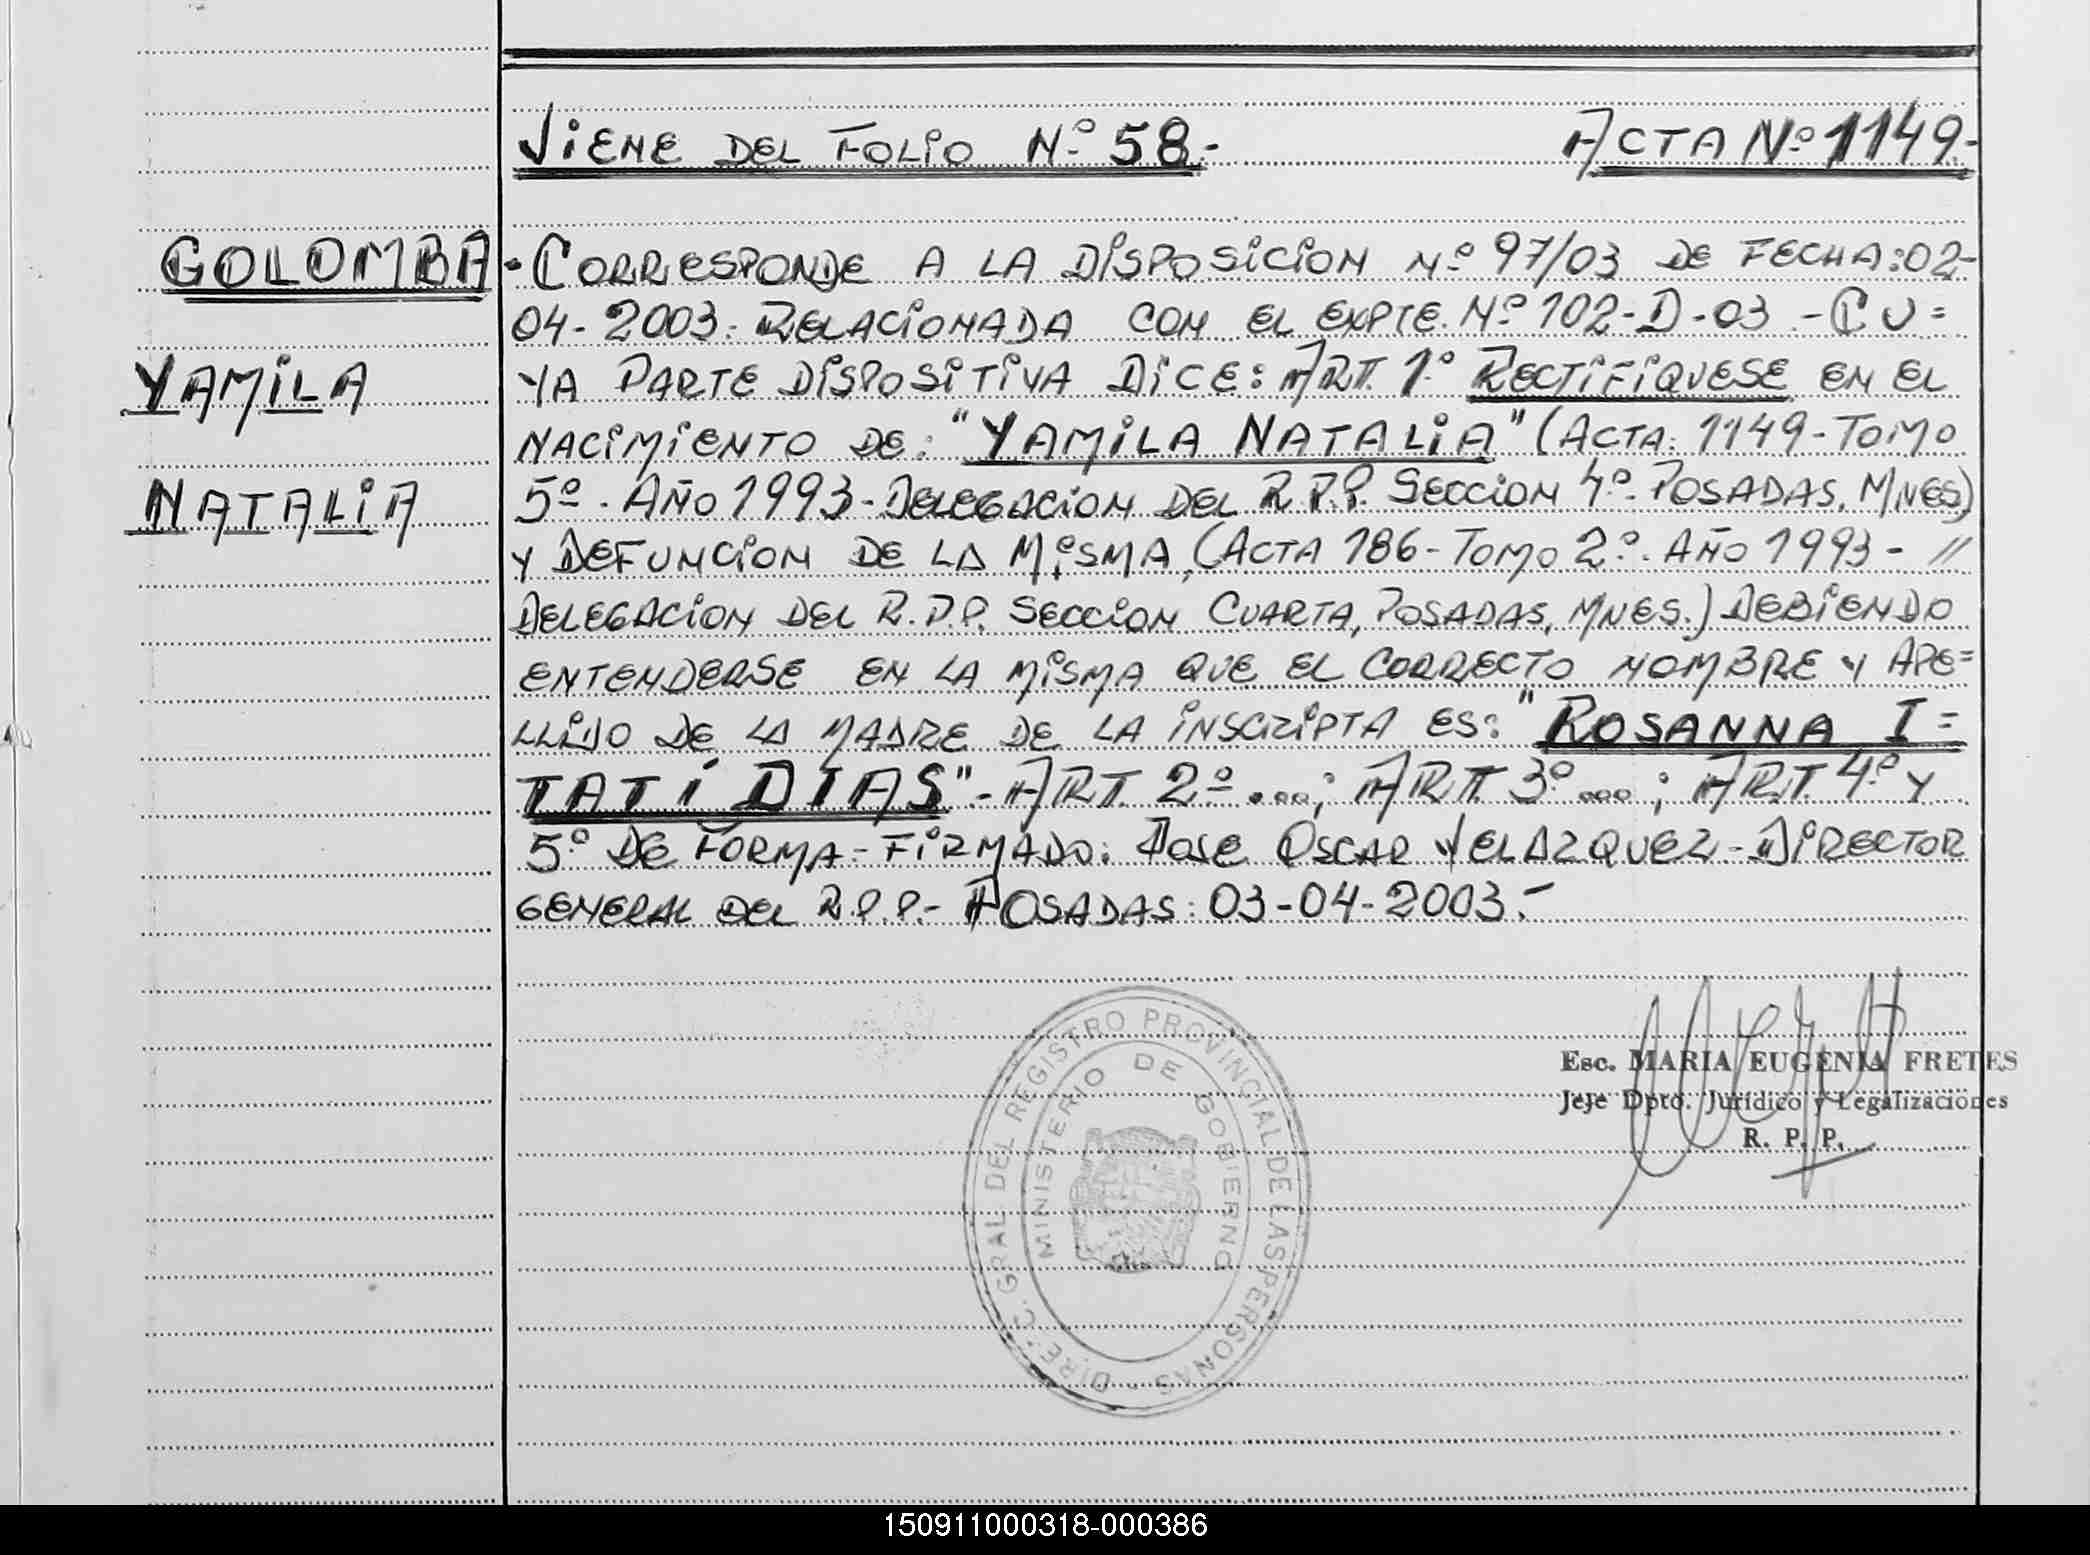 VIENE DEL FOLIO Nº 58.- ACTA Nº 1149.-
GOLOMBA
YAMILA
NATALIA
- CORRESPONDE A LA DISPOSICION Nº 97/03 DE FECHA: 02-
04-2003. RELACIONADA CON EL EXPTE. Nº 102-D-03.- CU=
YA PARTE DISPOSITIVA DICE: ART. 1º RECTIFIQUESE EN EL
NACIMIENTO DE: "YAMILA NATALIA" (ACTA. 1149-TOMO
5º. AÑO 1993-DELEGACION DEL R.P.P. SECCION 4º. POSADAS, MNES)
Y DEFUNCION DE LA MISMA, (ACTA 186-TOMO 2º. AÑO 1993- //
DELEGACION DEL R.P.P. SECCION CUARTA, POSADAS, MNES.) DEBIENDO
ENTENDERSE EN LA MISMA QUE EL CORRECTO NOMBRE Y APE=
LLIDO DE LA MADRE DE LA INSCRIPTA ES: "ROSANNA I=
TATÍ DIAS".- ART. 2º ...; ART. 3º ...; ART. 4º Y
5º DE FORMA.- FIRMADO: JOSE OSCAR VELAZQUEZ-DIRECTOR
GENERAL DEL R.P.P.- POSADAS: 03-04-2003.-
DIREC. GRAL DEL REGISTRO PROVINCIAL DE LAS PERSONAS -
MINISTERIO DE GOBIERNO
Esc. MARIA EUGENIA FRETES
Jefe Dpto. Jurídico y Legalizaciones
R. P. P.
150911000318-000386